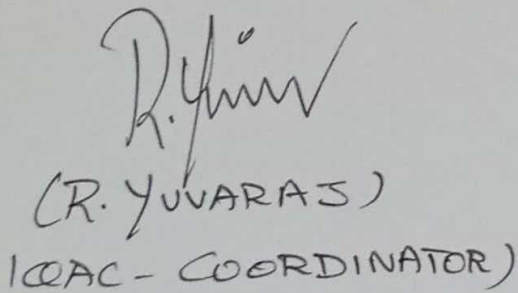 R. Yuv
(R. YUVARAJ)
IQAC - COORDINATOR)